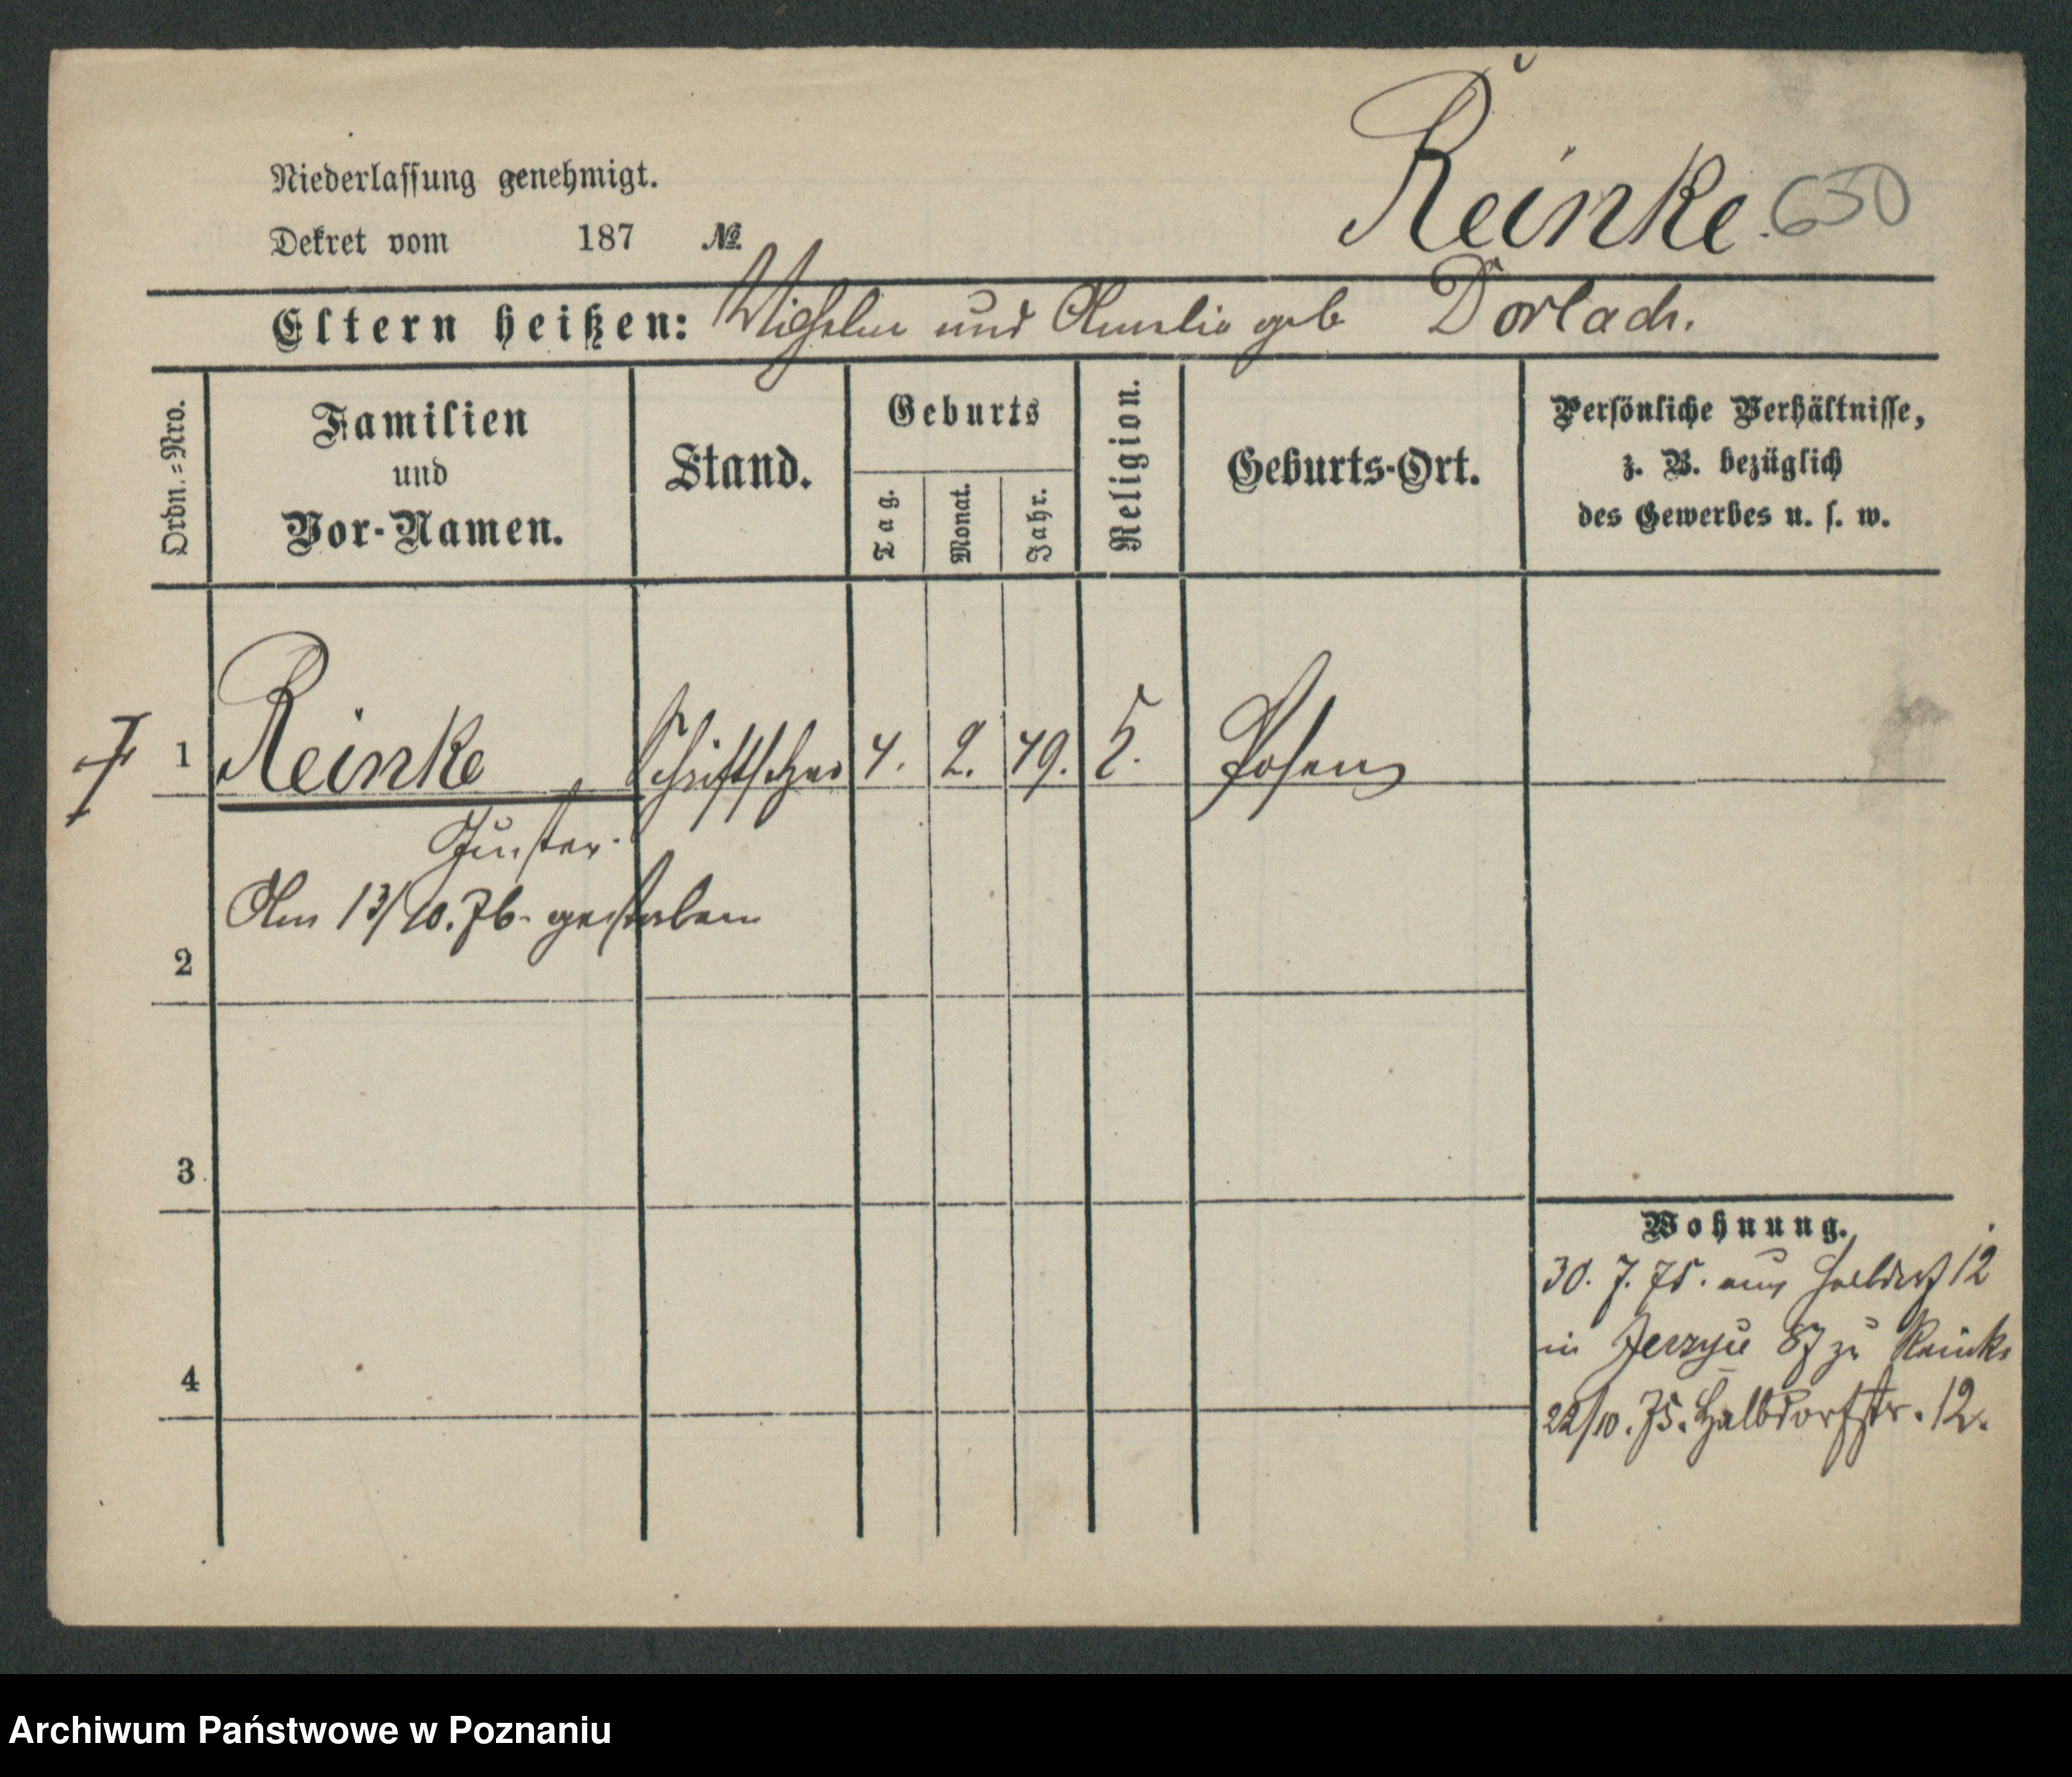 Reinke. 650
Niederlassung genehmigt.
Dekret vom 187 №
Eltern heißen: Wilhelm und Amalie geb Dorlach.
Ordn.=Nro.
Familien
und
Vor-Namen.
Stand.
Geburts
Tag.
Monat.
Jahr.
Religion.
Geburts-Ort.
Persönliche Verhältnisse,
z. B. bezüglich
des Gewerbes u. s. w.
1 Reinke Schriftsetzer 4. 2. 49. Posen
Gustav.
Am 13/10.76. gestorben
2
3
4
Wohnung.
30. 7. 75. aus Halbdorf 12
in 87 zu Reinke
22/10. 75. Halbdorfstr. 12.
Archiwum Państwowe w Poznaniu